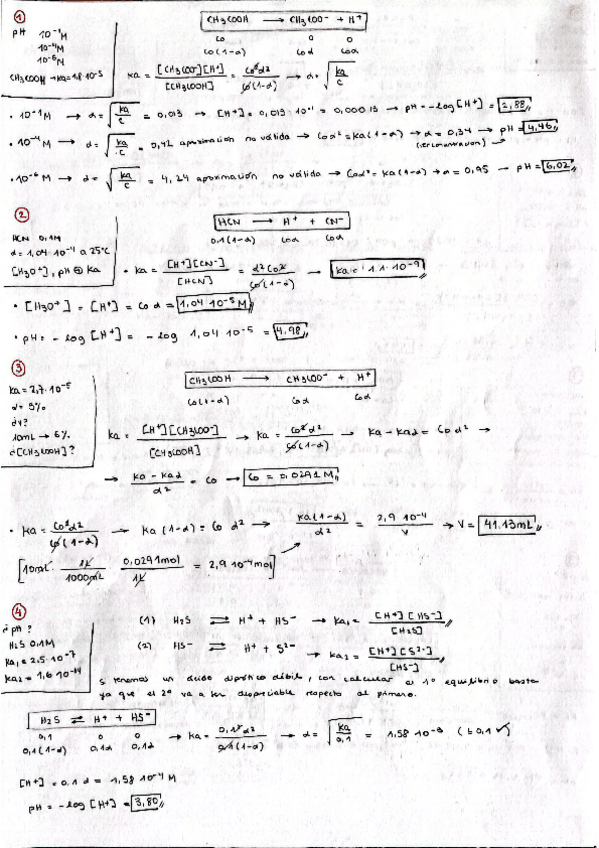 1
pH 10⁻¹M
10⁻⁴M
10⁻⁶M
CH₃COOH → Ka = 1,8·10⁻⁵
CH₃COOH → CH₃COO⁻ + H⁺
C₀ 0 0
C₀(1-α) C₀α C₀α
Ka = [CH₃COO⁻][H⁺] / [CH₃COOH] = C₀²α² / C₀(1-α) → α = √(Ka/C)
• 10⁻¹M → α = √(Ka/C) = 0,013 → [H⁺] = 0,013·10⁻¹ = 0,0013 → pH = -log[H⁺] = 2,88
• 10⁻⁴M → α = √(Ka/C) = 0,42 aproximación no válida → C₀α² = Ka(1-α) → α = 0,34 → pH = 4,46
• 10⁻⁶M → α = √(Ka/C) = 4,24 aproximación no válida → C₀α² = Ka(1-α) → α = 0,95 → pH = 6,02
2
HCN 0,1M
α = 1,04·10⁻⁴ a 25°C
[H₃O⁺], pH Ka
HCN → H⁺ + CN⁻
0,1(1-α) C₀α C₀α
• Ka = [H⁺][CN⁻] / [HCN] = α²C₀² / C₀(1-α) → Ka = 1.1·10⁻⁹
• [H₃O⁺] = [H⁺] = C₀α = 1,04·10⁻⁵M
• pH = -log [H⁺] = -log 1,04·10⁻⁵ = 4,98
3
Ka = 2,7·10⁻⁵
α = 3%
ΔV?
10mL → 6%
[CH₃COOH]?
CH₃COOH → CH₃COO⁻ + H⁺
C₀(1-α) C₀α C₀α
Ka = [H⁺][CH₃COO⁻] / [CH₃COOH] → Ka = C₀²α² / C₀(1-α) → Ka - Kaα = C₀α² →
→ (Ka - Kaα) / α² = C₀ → C₀ = 0,0291M
• Ka = C₀²α² / C₀(1-α) → Ka(1-α) = C₀α² → Ka(1-α) / α² = 2,9·10⁻⁴ / V → V = 41.13mL
[10mL · 1L / 1000mL · 0,0291mol / 1L = 2,9·10⁻⁴mol]
4
¿pH?
H₂S 0.1M
Ka₁ = 2,5·10⁻⁷
Ka₂ = 1,6·10⁻¹⁴
(1) H₂S ⇌ H⁺ + HS⁻ → Ka₁ = [H⁺][HS⁻] / [H₂S]
(2) HS⁻ ⇌ H⁺ + S²⁻ → Ka₂ = [H⁺][S²⁻] / [HS⁻]
Si tenemos un ácido diprótico débil, con calcular el 1º equilibrio basta
ya que el 2º va a ser despreciable respecto al primero.
H₂S ⇌ H⁺ + HS⁻
0,1 0 0
0,1(1-α) 0,1α 0,1α
→ Ka = 0,1²α² / 0,1(1-α) → α = √(Ka/0,1) = 1,58·10⁻³
[H⁺] = 0,1·α = 1,58·10⁻⁴ M
pH = -log [H⁺] = 3,80